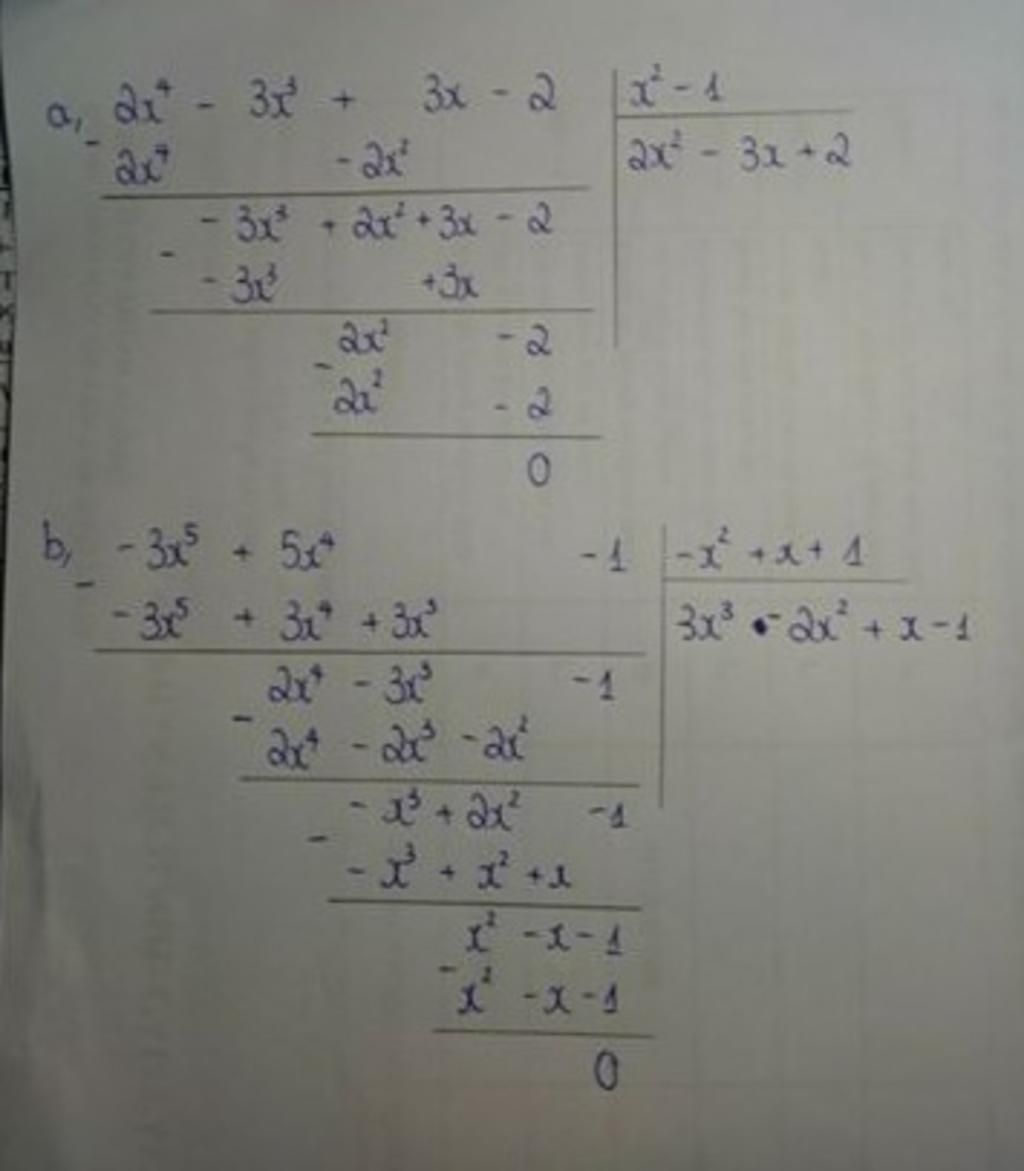 a, 2x⁴ - 3x³ + 3x - 2 | x² - 1
- 2x⁴ - 2x² | 2x² - 3x + 2
- 3x³ + 2x² + 3x - 2
- - 3x³ + 3x
2x² - 2
- 2x² - 2
0
b, - 3x⁵ + 5x⁴ - 1 | - x² + x + 1
- - 3x⁵ + 3x⁴ + 3x³ | 3x³ - 2x² + x - 1
2x⁴ - 3x³ - 1
- 2x⁴ - 2x³ - 2x²
- x³ + 2x² - 1
- - x³ + x² + x
x² - x - 1
- x² - x - 1
0